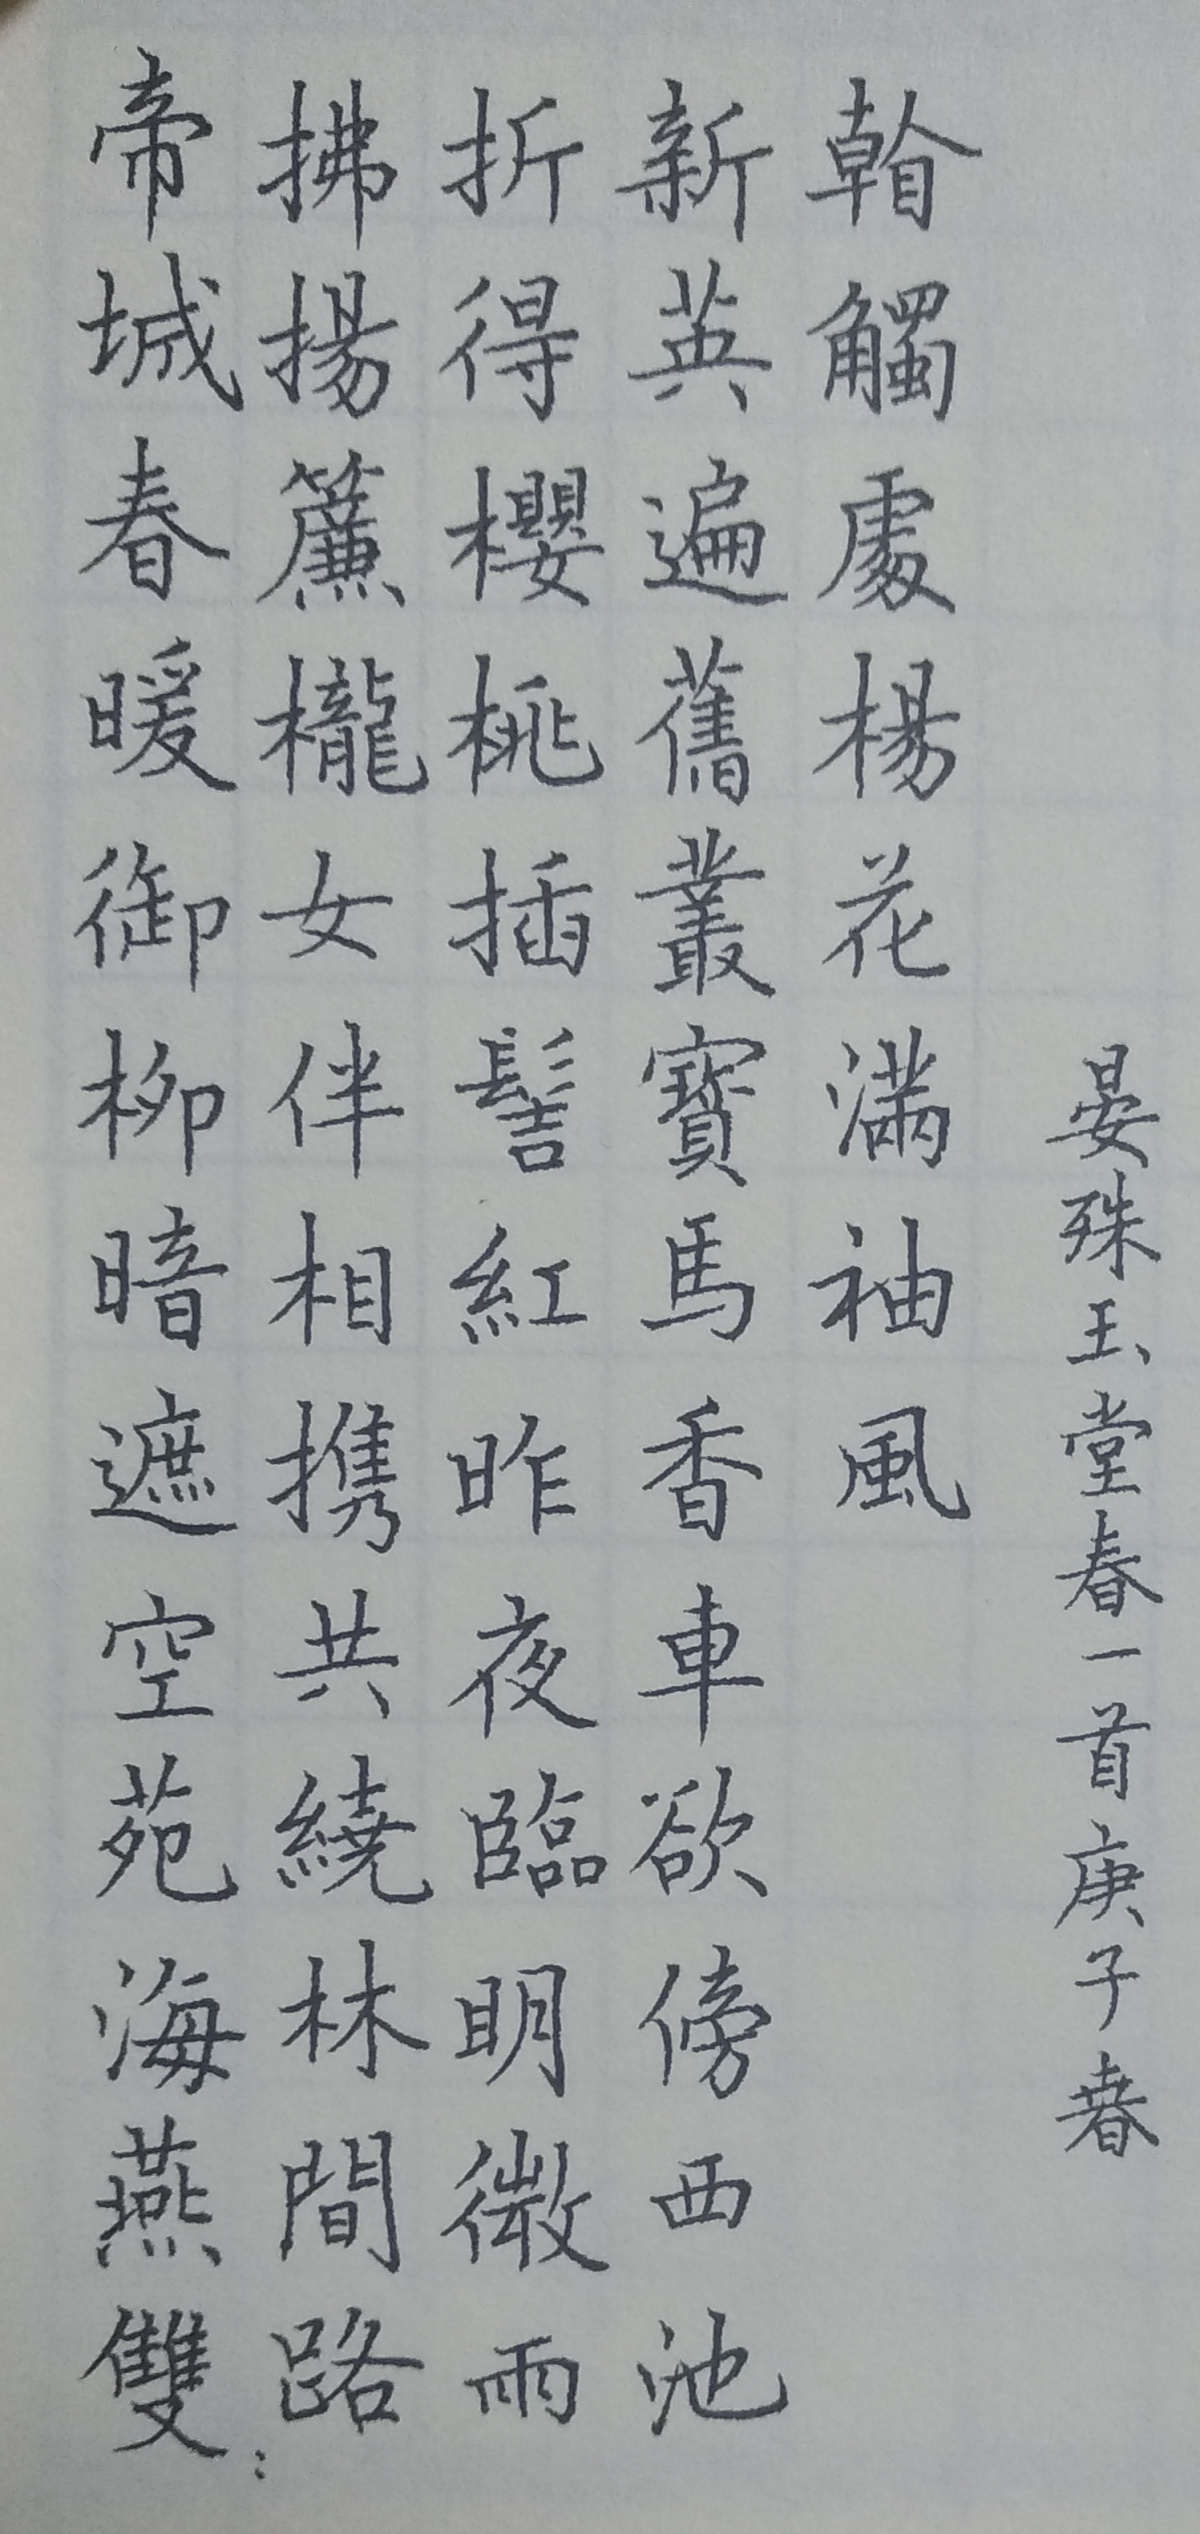 帝城春暖御柳暗遮空苑海燕雙:
拂揚簾櫳女伴相携共繞林間路
折得櫻桃插髻紅昨夜臨明微雨
新英遍舊叢寶馬香車欲傍西池
觸處楊花滿袖風
晏殊玉堂春一首庚子春